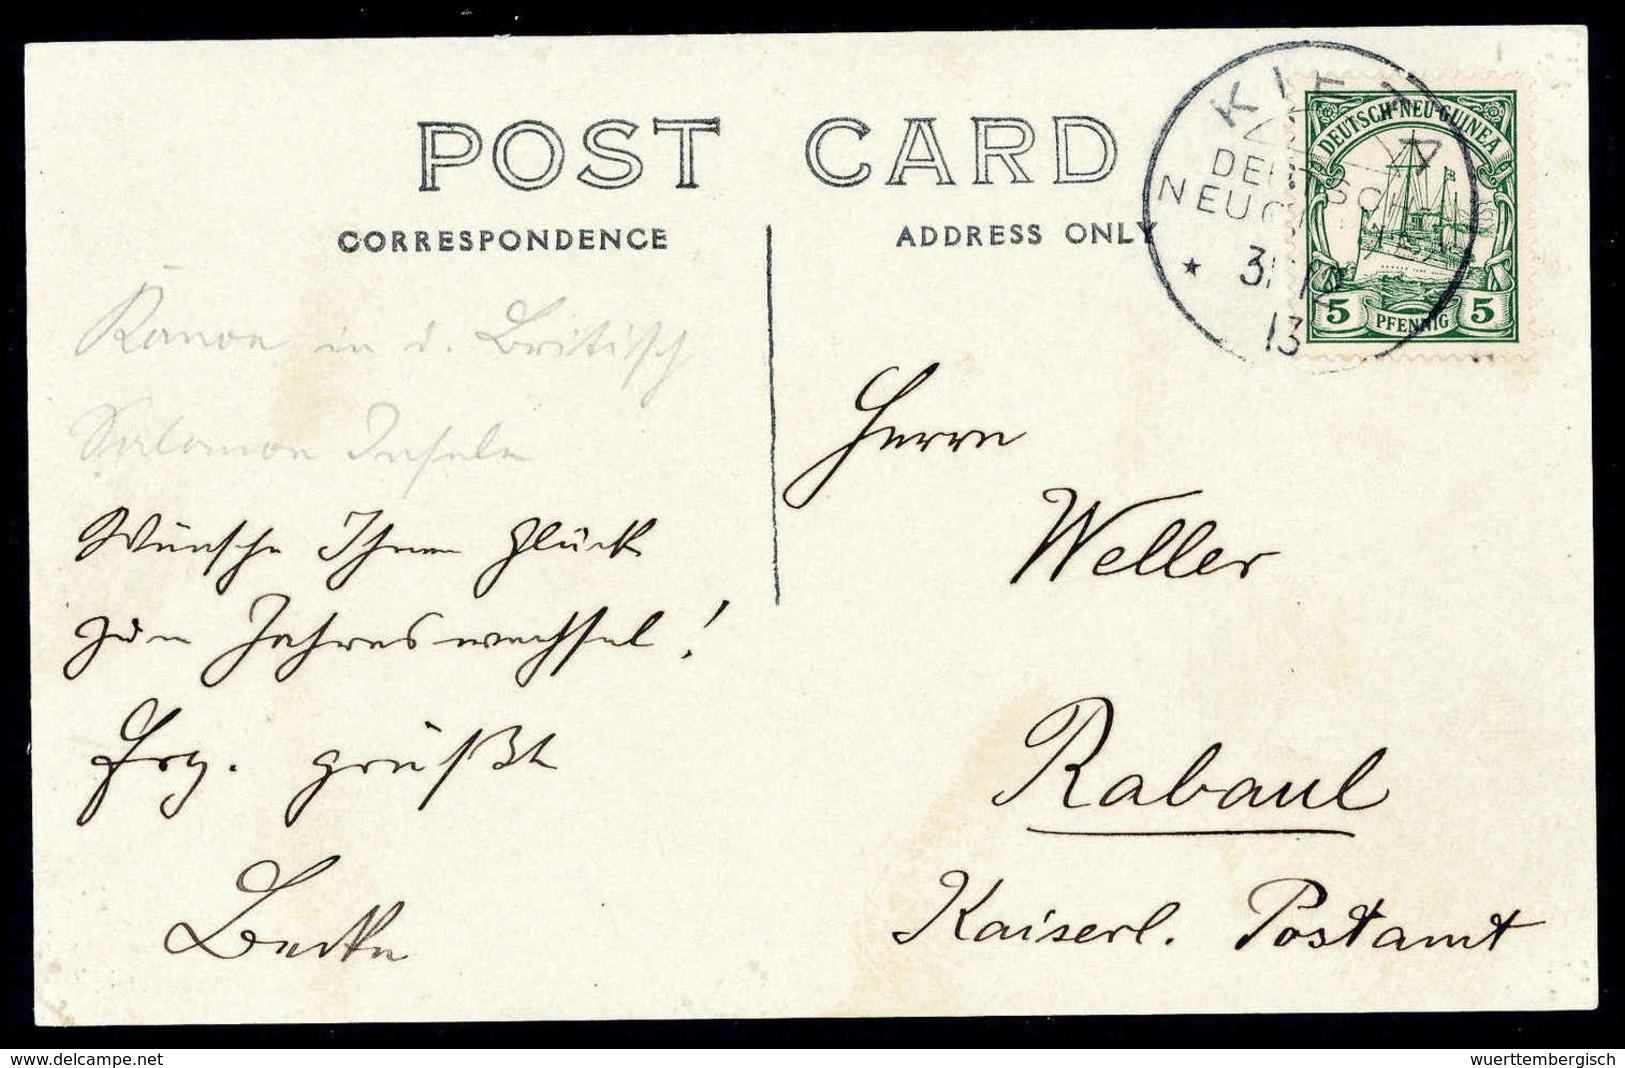 POST CARD
CORRESPONDENCE
ADDRESS ONLY
KIETA
DEUTSCH-
NEUGUINEA
31 12
13
DEUTSCH-NEU-GUINEA
5 PFENNIG 5
Kanoe in d. Britisch
Salomon Inseln
Wünsche Ihnen Glück
zum Jahreswechsel!
Erg. grüßt
Herrn
Weller
Rabaul
Kaiserl. Postamt
delcampe.net
wuerttembergisch